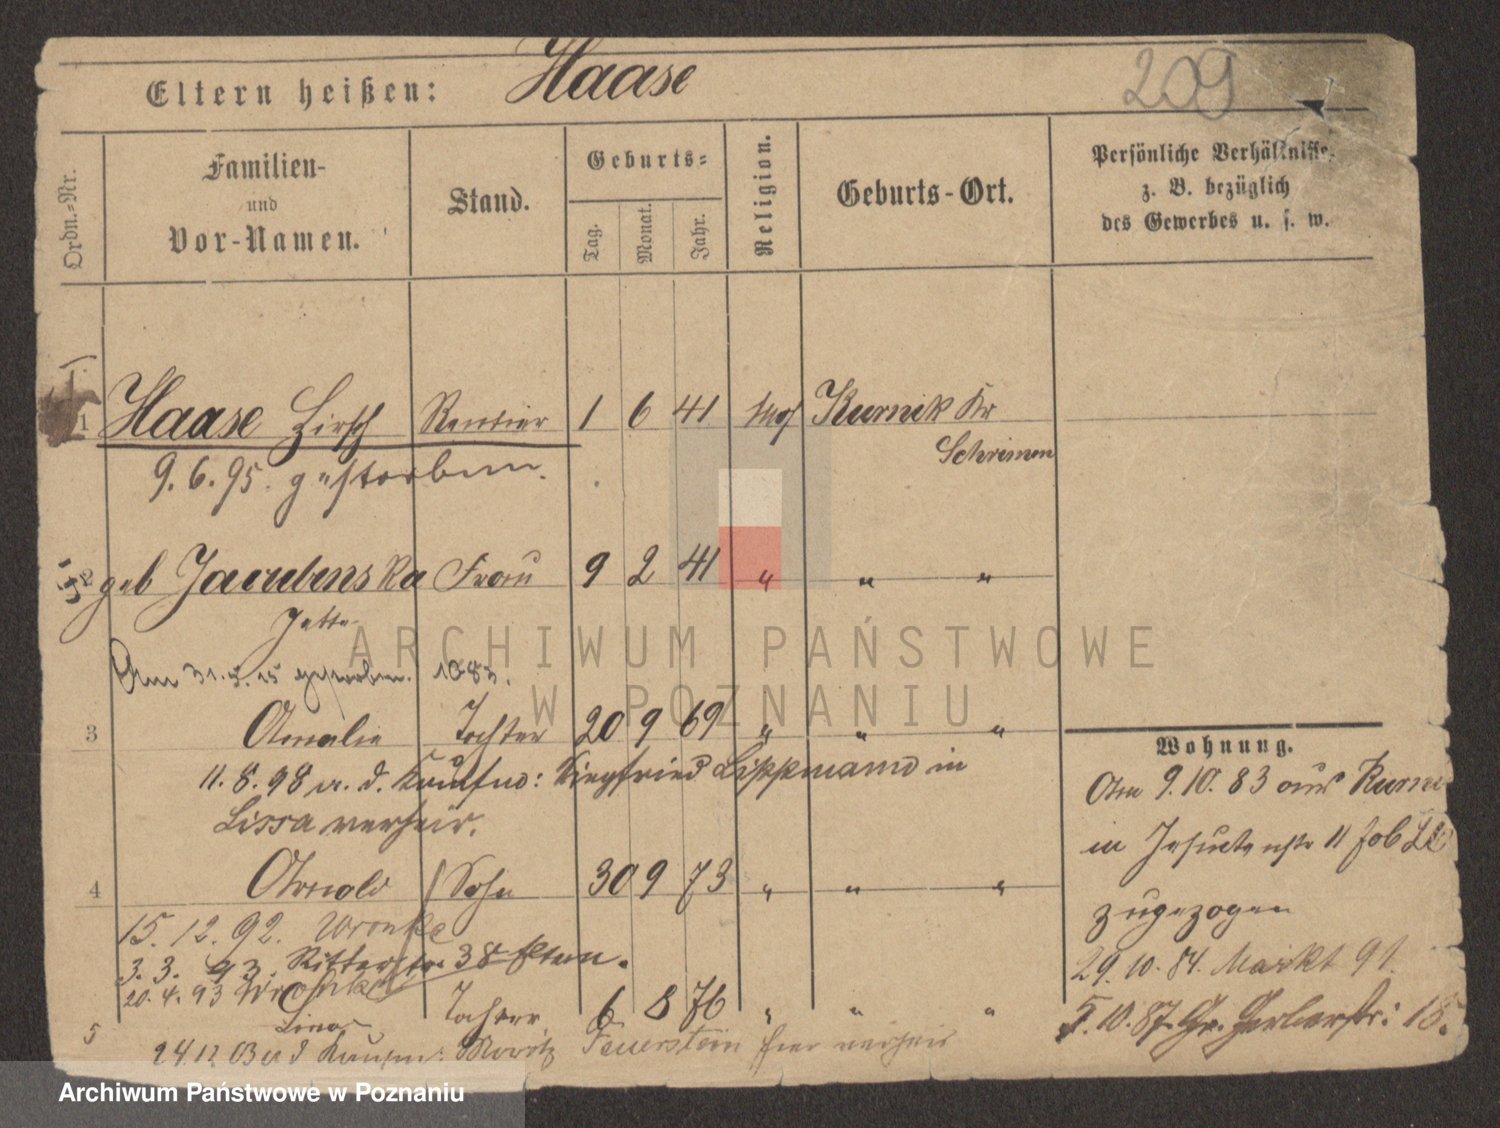 Eltern heißen: Haase 209
Ordn.-Nr.
Familien- und Vor-Namen.
Stand.
Geburts-
Tag. Monat. Jahr.
Religion.
Geburts-Ort.
Persönliche Verhältnisse,
z. B. bezüglich
des Gewerbes u. s. w.
1 Haase Hirsch Rentier 1 6 41 mos Kurnik Kr
Schrimm
9. 6. 95. gestorben.
2 geb Jacubowska Frau 9 2 41 " " "
Jette
Am 31. 3. 15 gestorben.
3 Amalie Tochter 20 9 69 " " "
11. 8. 98 a. d. Kaufm: Siegfried Lippmann in
Lissa verheir.
4 Arnold Sohn 30 9 73 " " "
15. 12. 92. Wronke
3. 3. 93. Ritterstr. 38
20. 4. 93 Wronke
5 Lina Tochter 6 8 76 " " "
24 12 03 a d Kaufm: Moritz Feuerstein hier verheir
Wohnung.
Am 9. 10. 83 aus Kurni
in Jesuitenstr 11
zugezogen
29. 10. 84. Markt 91.
5. 10. 87. Gr. Gerberstr: 15.
ARCHIWUM PAŃSTWOWE
W POZNANIU
Archiwum Państwowe w Poznaniu